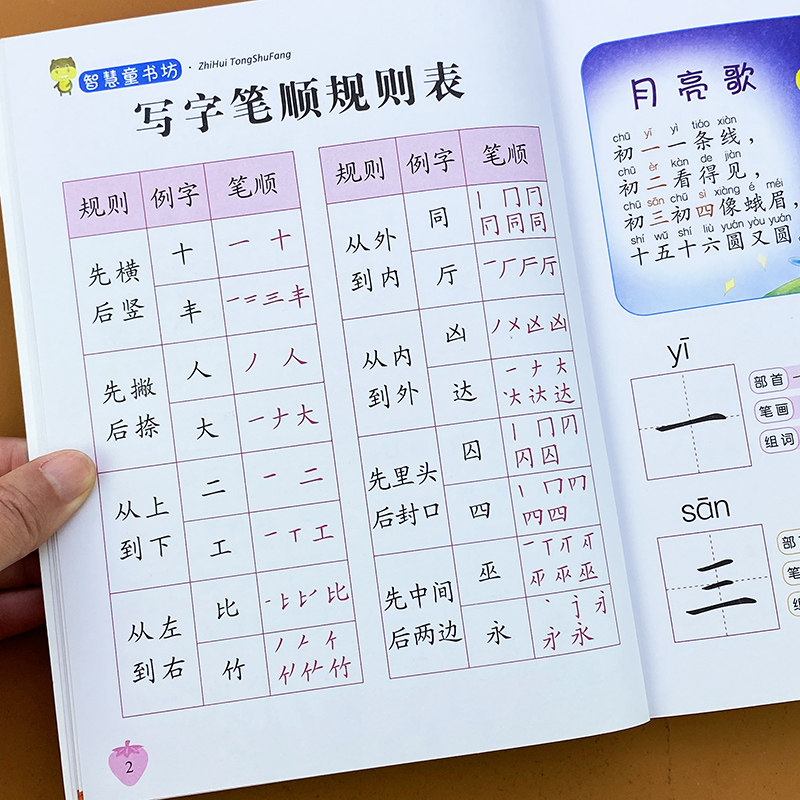 智慧童书坊 · ZhiHui TongShuFang
写字笔顺规则表
规则 例字 笔顺
先横
后竖
十 一 十
丰 一 = 三 丰
先撇
后捺
人 丿 人
大 一 ナ 大
从上
到下
二 一 二
工 一 丅 工
从左
到右
比
竹
规则 例字 笔顺
从外
到内
同 丨 冂 冂
同 同 同
厅 一 厂 厅 厅
从内
到外
凶 丿 乂 凶 凶
达 一 ナ 大
大 达 达
先里头
后封口
囚 丨 冂 冈
囚 囚
四 丨 冂
四 四
先中间
后两边
巫 一 丅
巫 巫
永 丶
永 永
2
月亮歌
chū yī yì tiáo xiàn
初一一条线，
chū èr kàn de jiàn
初二看得见，
chū sān chū sì xiàng é méi
初三初四像蛾眉，
shí wǔ shí liù yuán yòu yuán
十五十六圆又圆。
yī
一
部首
笔画
组词
sān
三
部
笔
组